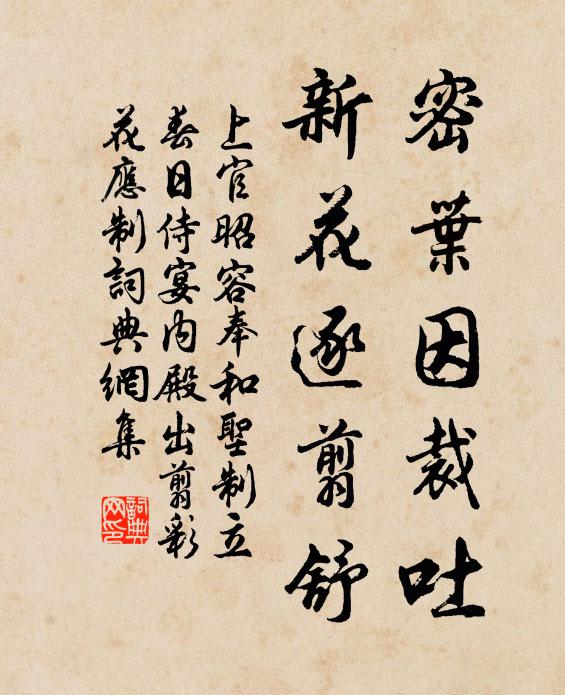 密葉因裁吐
新花逐翦舒
上官昭容奉和聖制立
春日侍宴内殿出翦彩
花應制詞典網集
詞典
网印